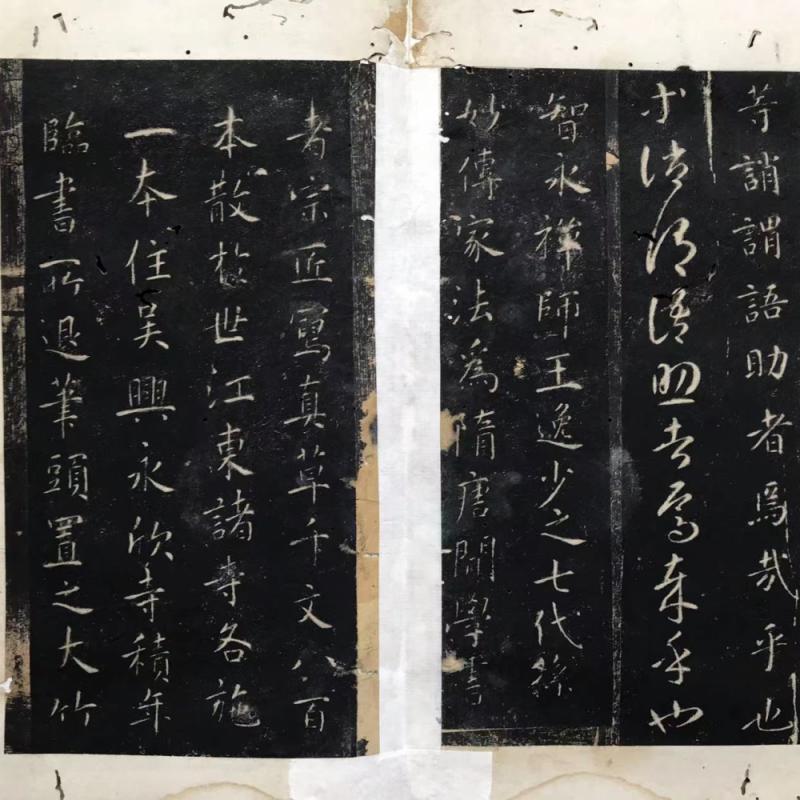 等誚謂語助者焉哉乎也
等誚謂語助者焉哉乎也
智永禪師王逸少之七代孫
妙傳家法爲隋唐間學書
者宗匠寫真草千文八百
本散於世江東諸寺各施
一本住吳興永欣寺積年
臨書所退筆頭置之大竹